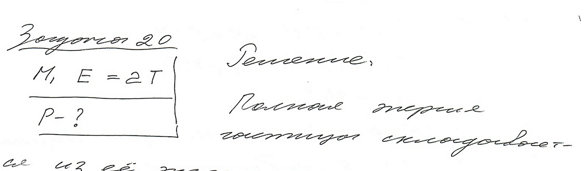 Задача 20
M, E = 2T
P - ?
Решение.
Полная энергия
частицы складывает-
ся из её